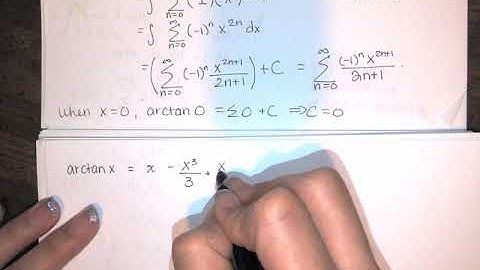 ∫ Σ n=0 (-1)ⁿ (x²)ⁿ
= ∫ Σ_{n=0}^{∞} (-1)ⁿ x²ⁿ dx
= (Σ_{n=0}^{∞} (-1)ⁿ x²ⁿ⁺¹/2n+1) + C = Σ_{n=0}^{∞} (-1)ⁿ x²ⁿ⁺¹/2n+1 .
When x=0, arctan 0 = Σ0 + C ⇒ C=0
arctan x = x - x³/3 + x